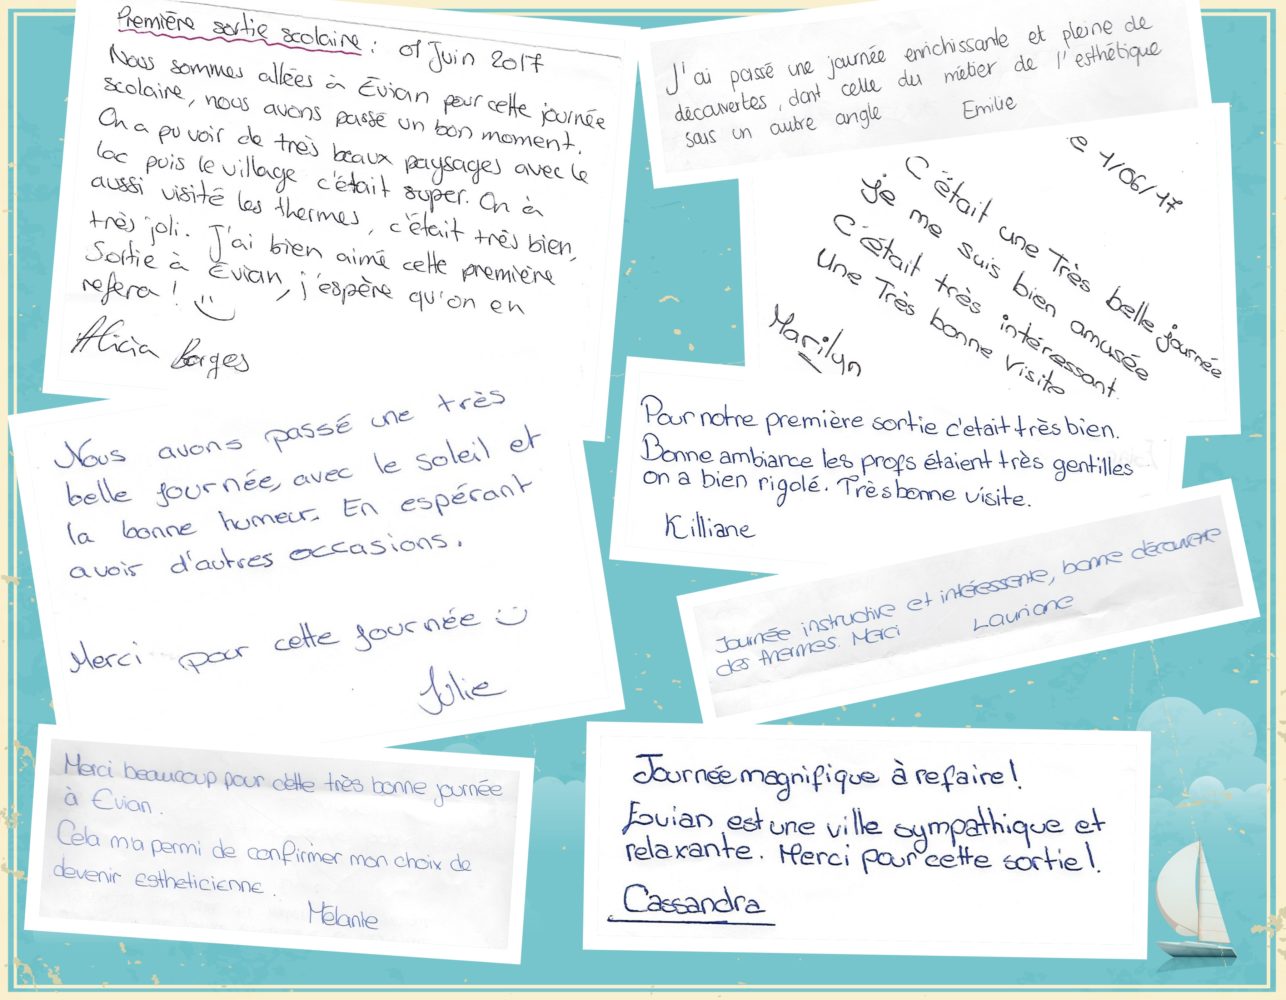 Première sortie scolaire : 01 Juin 2017
Nous sommes allées à Évian pour cette journée
scolaire, nous avons passé un bon moment.
On a pu voir de très beaux paysages avec le
lac puis le village c'était super. On à
aussi visité les thermes, c'était très bien,
très joli. J'ai bien aimé cette première
Sortie à Évian, j'espère qu'on en
refera !
Alicia Borges
J'ai passé une journée enrichissante et pleine de
découvertes, dont celle du métier de l'esthétique
sous un autre angle
Emilie
e 1/06/17
C'était une Très belle journée
je me suis bien amusée
C'était très intéressant.
Une Très bonne visite
Marilyn
Nous avons passé une très
belle journée, avec le soleil et
la bonne humeur. En espérant
avoir d'autres occasions.
Merci pour cette journée
Julie
Pour notre première sortie c'etait très bien.
Bonne ambiance les profs étaient très gentilles
on a bien rigolé. Très bonne visite.
Killiane
Journée instructive et intéressente, bonne découverte
des thermes. Merci
Lauriane
Merci beaucoup pour cette très bonne journée
à Évian.
Cela m'a permi de confirmer mon choix de
devenir estheticienne.
Mélanie
Journée magnifique à refaire !
Evian est une ville sympathique et
relaxante. Merci pour cette sortie !
Cassandra